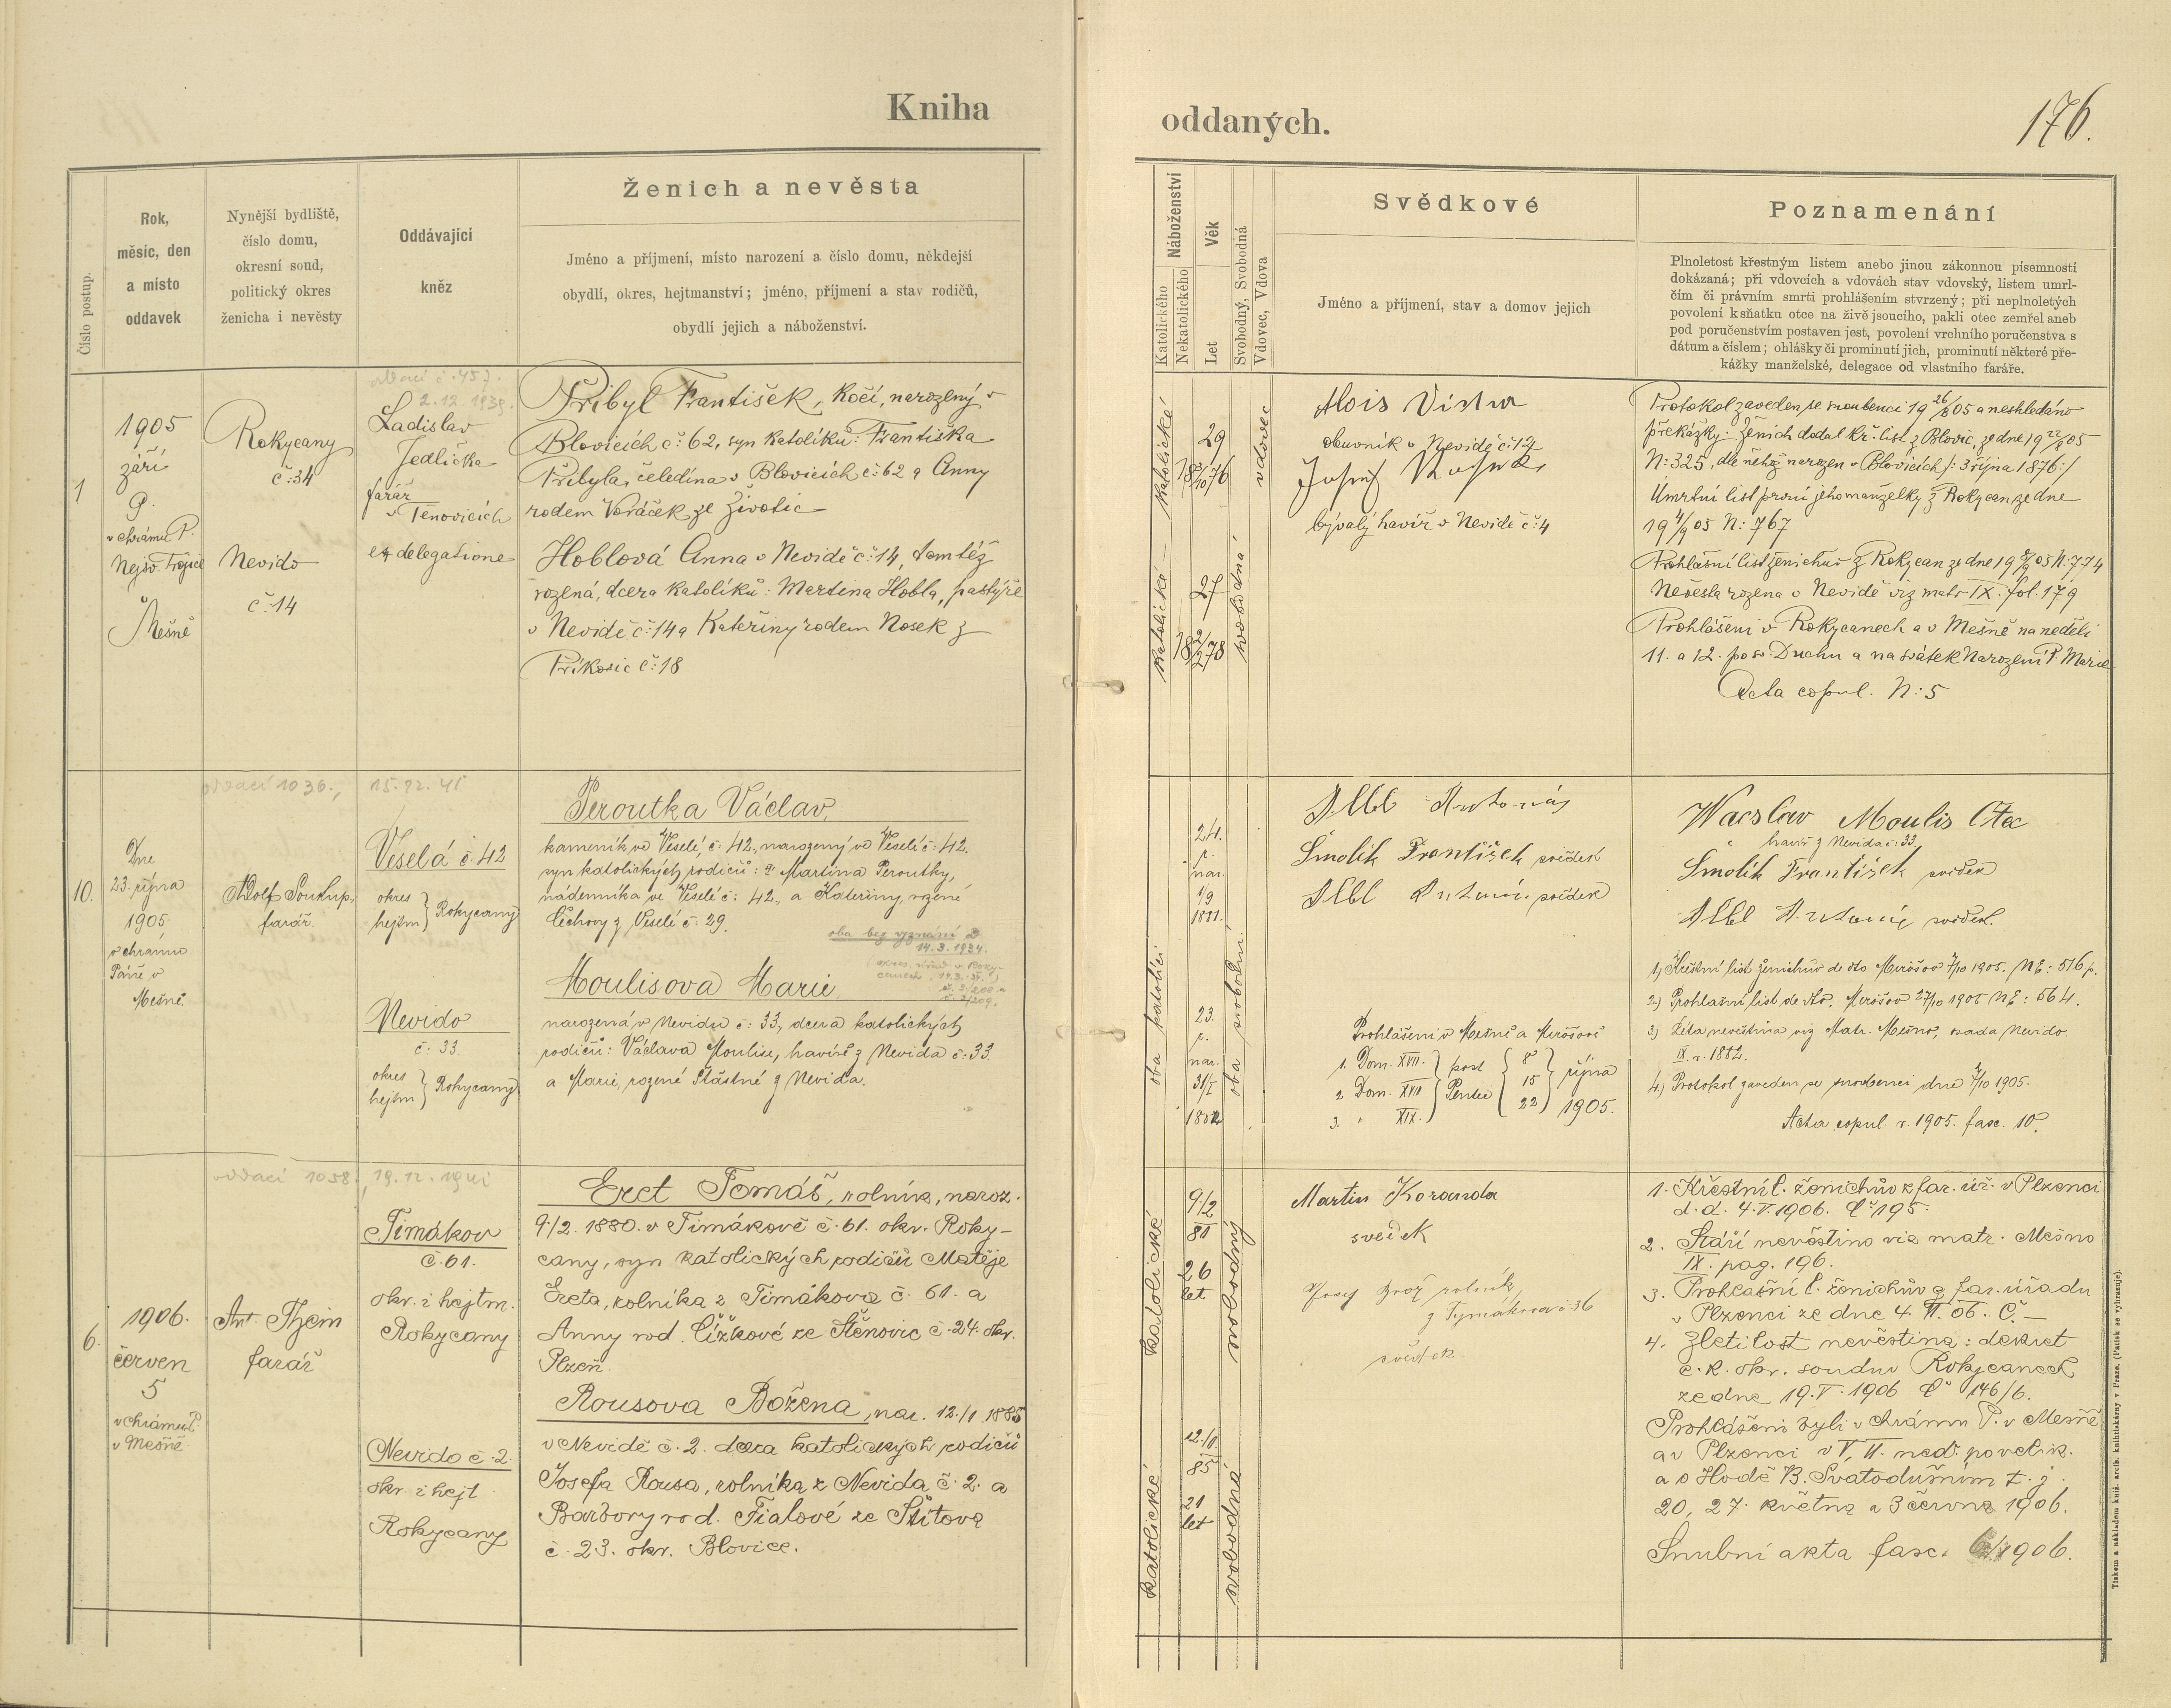 Kniha
oddaných.
176.
Číslo postup.
Rok,
měsíc, den
a místo
oddavek
Nynější bydliště,
číslo domu,
okresní soud,
politický okres
ženicha i nevěsty
Oddávající
kněz
Ženich a nevěsta
Jméno a příjmení, místo narození a číslo domu, někdejší
obydlí, okres, hejtmanství; jméno, příjmení a stav rodičů,
obydlí jejich a náboženství.
Náboženství
Katolického
Nekatolického
Věk
Let
Svobodný, Svobodná
Vdovec, Vdova
Svědkové
Jméno a příjmení, stav a domov jejich
Poznamenání
Plnoletost křestným listem anebo jinou zákonnou písemností
dokázaná; při vdovcích a vdovách stav vdovský, listem umrl-
čím či právním smrti prohlášením stvrzený; při neplnoletých
povolení k sňatku otce na živě jsoucího, pakli otec zemřel aneb
pod poručenstvím postaven jest, povolení vrchního poručenstva s
dátum a číslem; ohlášky či prominutí jich, prominutí některé pře-
kážky manželské, delegace od vlastního faráře.
1
1905
září
9.
v chrámu P.
Nejsv. Trojice
v
Mešně
Rokycany
č: 34
Nevido
č: 14
2.12.1939.
Ladislav
Jedlička
farář
v Těnovicích
ex delegatione
Přibyl František, kočí, narozený v
Blovicích č: 62, syn katolíků: Františka
Přibyla, čeledína v Blovicích č: 62 a Anny
rodem Voráček ze Životic
Hoblová Anna v Nevidě č: 14, tamtéž
rozená, dcera katolíků: Martina Hobla, pastýře
v Nevidě č: 14 a Kateřiny rodem Nosek z
Příkosic č: 18
katolické
katolická
29
18 3/10 76
27
18 2/2 78
vdovec
svobodná
Alois
obuvník v Nevidě č: 12
Josef
bývalý havíř v Nevidě č: 4
Protokol zaveden se snoubenci 19 26/8 05 a neshledáno
překážky. Ženich dodal kř. list z Blovic, ze dne 19 22/8 05
N: 325, dle něhož narozen v Blovicích /: 3 října 1876 :/
Úmrtní list první jeho manželky z Rokycan ze dne
19 4/9 05 N: 767
Prohlášní list ženichův z Rokycan ze dne 19 8/9 05 N: 774
Nevěsta rozena v Nevidě viz matr IX. fol. 179
Prohlášeni v Rokycanech a v Mešně na neděli
11. a 12. po sv. Duchu a na svátek Narození P. Marie
Acta copul. N: 5
oddací 1036., 15.12.41
10.
Dne
23. října
1905
v chrámu
Páně v
Mešně.
Adolf Soukup,
farář.
Veselá č. 42
okres
hejtm } Rokycany
Nevido
č: 33.
okres
hejtm } Rokycany
Peroutka Václav,
kameník ve Veselé, č: 42., narozený ve Veselé č: 42.
syn katolických rodičů: Martina Peroutky,
nádenníka ve Veselé č: 42., a Kateřiny, rozené
Čechovy z Veselé č: 29.
oba bez vyznání
14.3.1934.
Moulisova Marie,
narozená v Nevidu č: 33., dcera katolických
rodičů: Václava Moulise, havíře z Nevida č: 33.
a Marie, rozené Šťastné z Nevida.
oba katolíci
24.
r.
nar.
1/9
1881.
23.
r.
nar.
31/I
1882
oba svobodní.
Albl Antonín
Smolík František svědek
Albl Antonín svědek
Prohlášeni v Mešně a Mirošově
1. Dom. XVII. } post { 8 } října
2. Dom. XVIII } Pentec { 15
3. " XIX. } { 22 } 1905.
Wacslav Moulis Otec
havíř z Nevida č: 33.
Smolík František svědek
Albl Antonín svědek.
1) Křestní list ženichův de dto Mirošov 7/10 1905. NE: 516 p.
2) Prohlašní list de dto. Mirošov 27/10 1905 NE: 564.
3) Léta nevěstina viz Matr. Mešno, osada Nevido.
IX. r. 1882.
4.) Protokol zaveden se snoubenci dne 7/10 1905.
Acta copul. r. 1905. fasc. 10.
oddací 1058., 19.12.1941
6.
1906.
červen
5
v chrámu P.
v Mešně.
Ant. Thein
farář
Timákov
č. 61.
okr. i hejtm.
Rokycany
Nevido č. 2.
okr. i hejt
Rokycany
Erct Tomáš, rolník, naroz.
9./2. 1880. v Timákově č. 61. okr. Roky-
cany, syn katolických rodičů Matěje
Ercta, rolníka z Timákova č. 61. a
Anny rod. Čížkové ze Štěnovic č. 24. okr.
Plzeň.
Rousova Božena, nar. 12./1 1885
v Nevidě č. 2. dcera katolických rodičů
Josefa Rousa, rolníka z Nevida č. 2. a
Barbory rod. Fialové ze Štítova
č. 23. okr. Blovice.
katolické
katolické
9./2
80
26
let.
12./1.
85
21
let
svobodný
svobodná
Martin Koranda
svědek
Josef Brož rolník,
z Tymákova č: 36
svědek
1. Křestní l. ženichův z far. úř. v Plzenci
d. d. 4. V. 1906. Č. 195.
2. Stáří nevěstino viz matr. Mešno
IX. pag. 196.
3. Prohlašní l. ženichův z far. úřadu
v Plzenci ze dne 4. VI. 06. Č. —
4. Zletilost nevěstina: dekret
c. k. okr. soudu v Rokycanech
ze dne 19. V. 1906 Č 146/6.
Prohlášeni byli v chrámu P. v Mešně
a v Plzenci v V, VI. ned. po velik.
a o Hodě B. Svatodušním t. j.
20, 27. května a 3 června 1906.
Snubní akta fasc. 6/1906.
Tiskem a nákladem kníž. arcib. knihtiskárny v Praze. (Patisk se vyhrazuje).